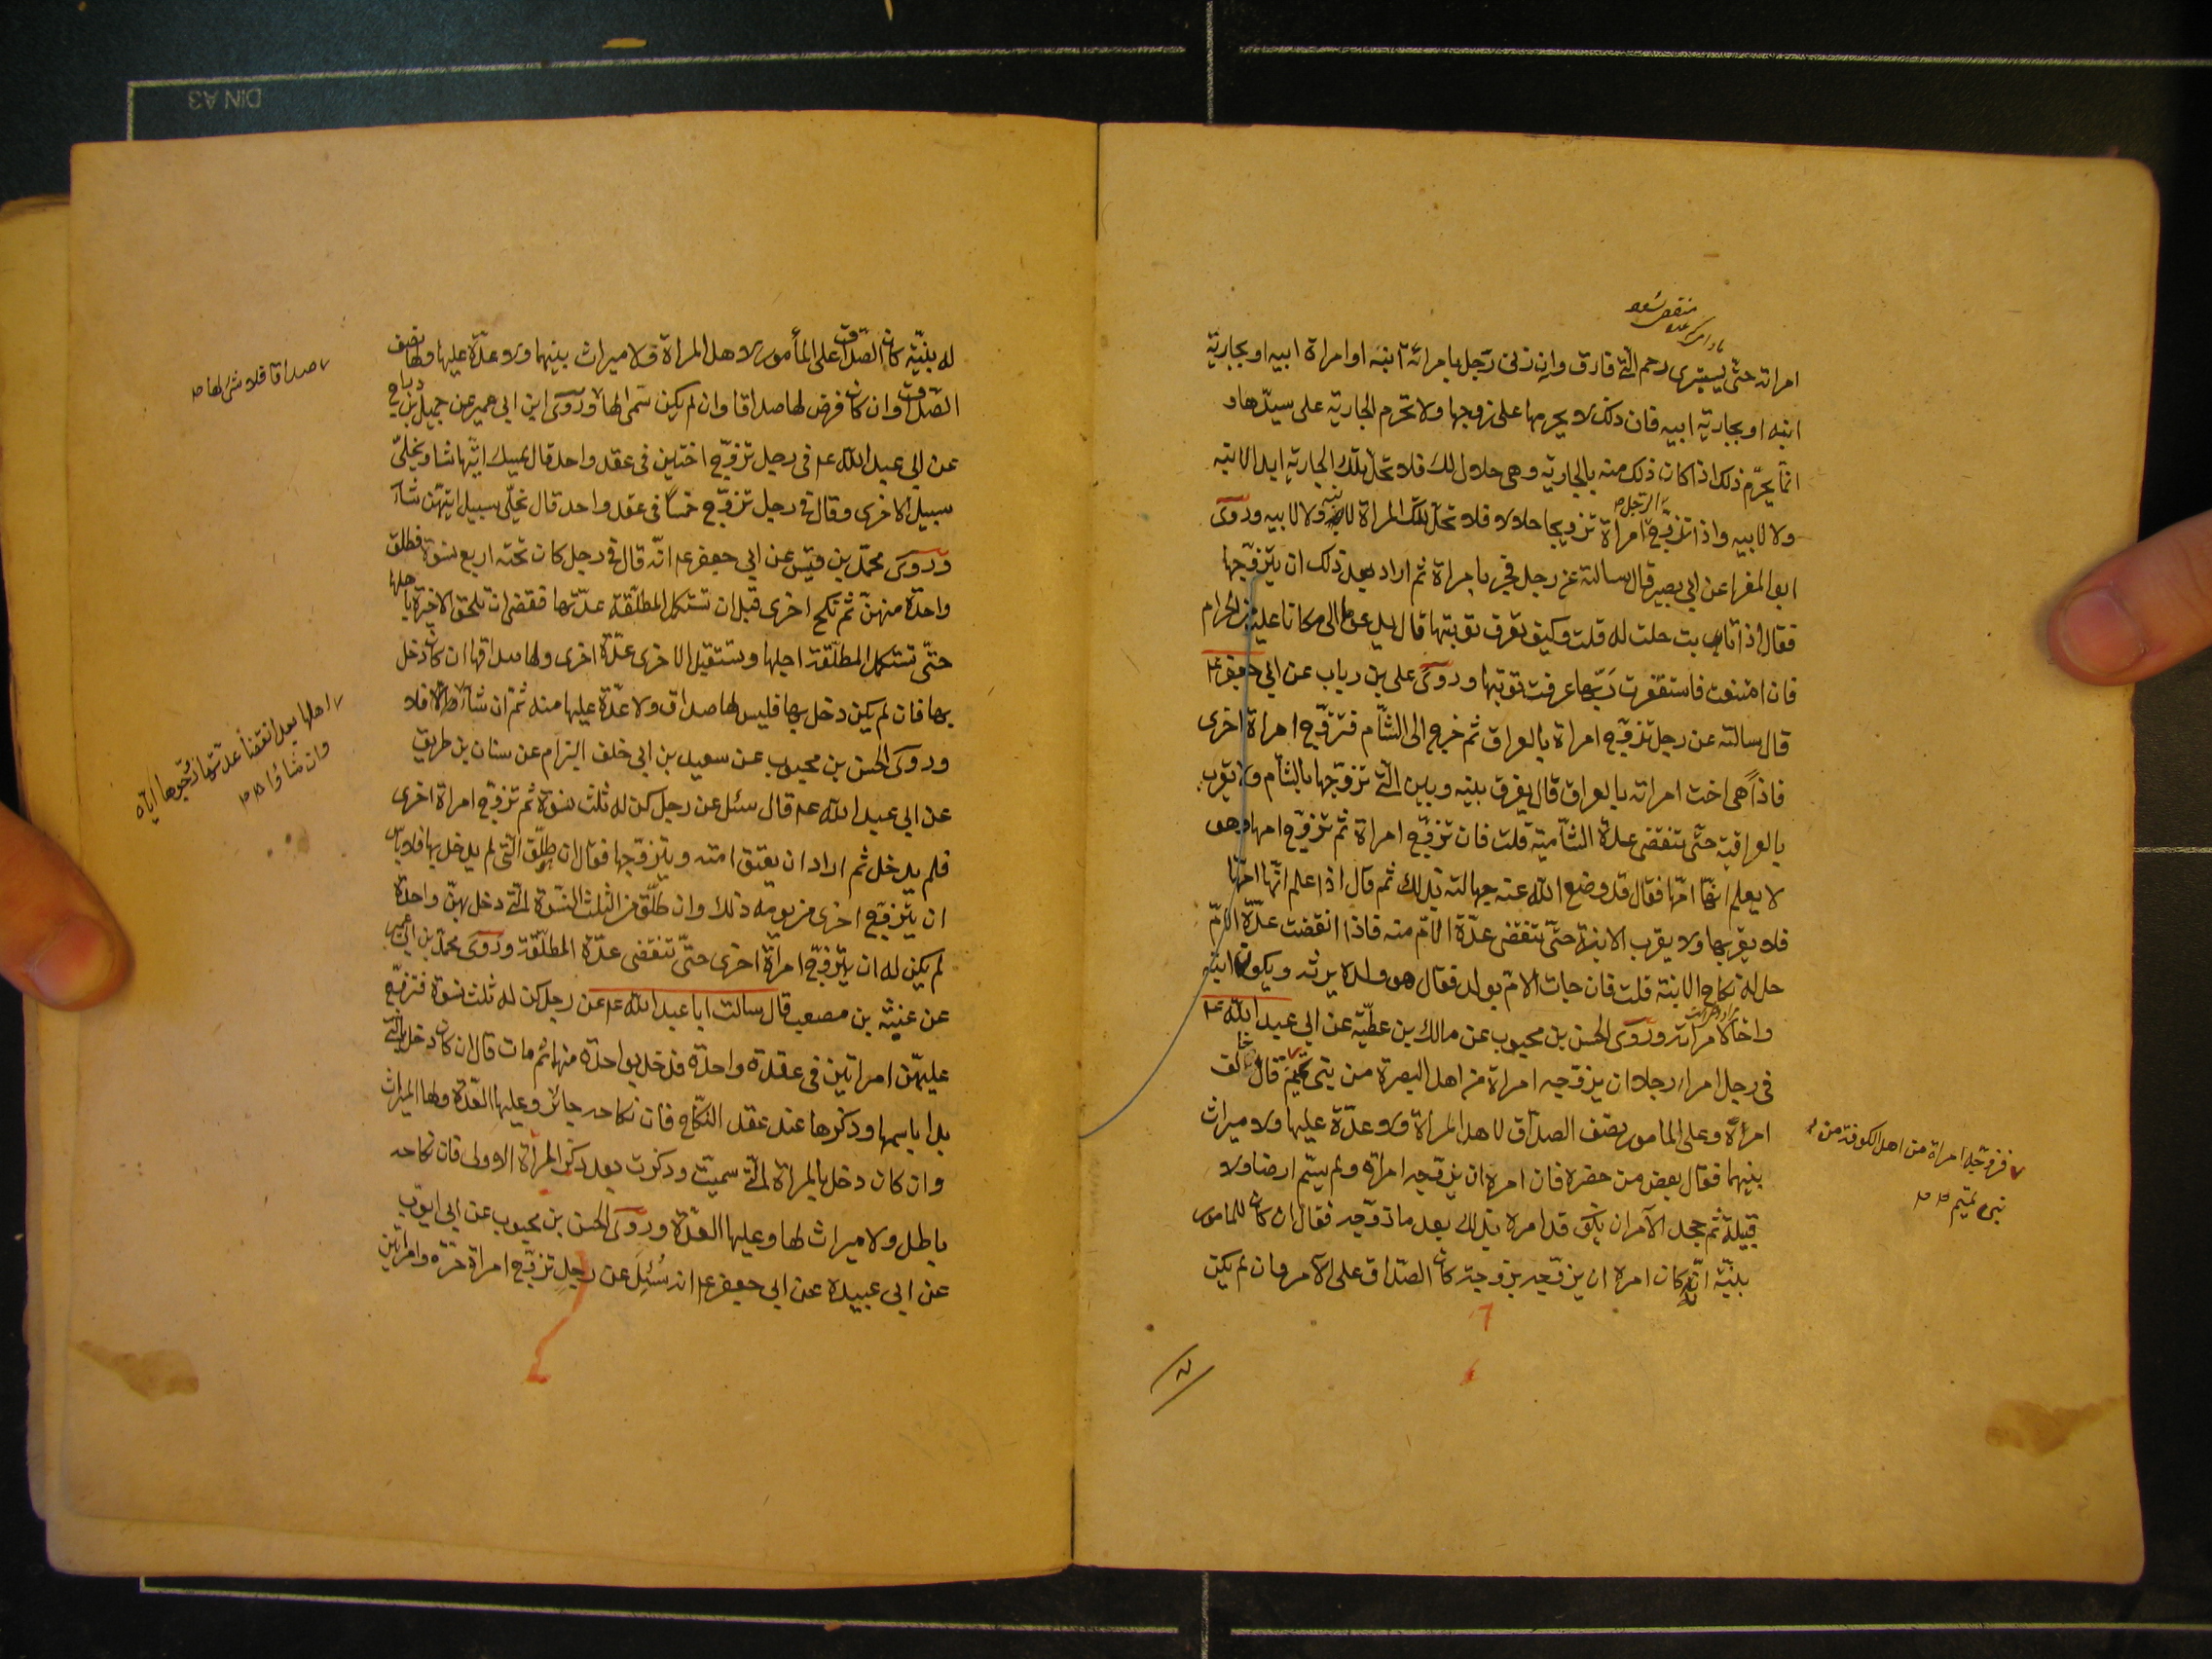 امراته حتى يستبرى رحم التي فارق وان زنى رجل بامراة ابنه او امراة ابيه او بجارية
ابنه او بجارية ابيه فان ذلك لا يحرمها على زوجها ولا تحرم الجارية على سيدها و
انما يحرم ذلك اذا كان ذلك منه بالجارية وهى حلال لك فلا تحل تلك الجارية ابدا لابنه
ولا لابيه واذا تزوج الرجل امراة تزويجا حلالا فلا تحل تلك المراة لابنه ولا لابيه وروى
ابو المغرا عن ابي بصير قال سالته عن رجل فجر بامراة ثم اراد بعد ذلك ان يتزوجها
فقال اذا تابت حلت له قلت وكيف تعرف توبتها قال يدعوها الى ما كانا عليه من الحرام
فان امتنعت فاستغفرت ربها عرفت توبتها وروى علي بن رياب عن ابي جعفر ع
قال سالته عن رجل تزوج امراة بالعراق ثم خرج الى الشام فتزوج امراة اخرى
فاذا هى اخت امراته بالعراق قال يفرق بينه وبين التي تزوجها بالشام ولا يقرب
بالعراقية حتى تنقضى عدة الشامية قلت فان تزوج امراة ثم تزوج امها وهو
لا يعلم انها امها فقال قد وضع الله عنه جهالته بذلك ثم قال اذا علم انها امها
فلا يقربها ولا يقرب الابنة حتى تنقضى عدة الام منه فاذا انقضت عدة الام
حل له نكاح الابنة قلت فان جات الام بولد فقال هو ولده يرثه ويكون ابنه
واخا لامراته وروى الحسن بن محبوب عن مالك بن عطية عن ابي عبد الله ع
فى رجل امر رجلا ان يزوجه امراة من اهل البصرة من بنى تميم قال خالف
فزوجه امراة من اهل الكوفة من
بنى تميم
امره وعلى المامور نصف الصداق لاهل المراة ولا عدة عليها ولا ميراث
بينهما فقال بعض من حضره فان امره ان يزوجه امراة ولم يسم ارضا ولا
قبيلة ثم جحد الآمر ان يكون قد امره بذلك بعد ما زوجه فقال ان كان للمامور
بينة انه كان امره ان يزوجه بزوجته كان الصداق على الآمر وان لم يكن
له بينة كان الصداق على المأمور لاهل المراة فلا ميراث بينهما ولا عدة عليها ولها نصف
الصداق وان كان فرض لها صداقا وان لم يكن سمى لها وروى ابن ابي عمير عن جميل بن دراج
صداقا فلا شئ لها
عن ابي عبد الله ع فى رجل تزوج اختين فى عقد واحد قال يمسك ايتهما شا ويخلى
سبيل الاخرى وقال في رجل تزوج خمسا فى عقد واحد قال يخلى سبيل ايتهن شآ
وروى محمد بن قيس عن ابي جعفر ع انه قال في رجل كان تحته اربع نسوة فطلق
واحدة منهن ثم نكح اخرى قبل ان تستكمل المطلقة عدتها فقضى ان تلحق الاخيرة باهلها
حتى تستكمل المطلقة اجلها وتستقبل الاخرى عدة اخرى ولها صداقها ان كان دخل
بها فان لم يكن دخل بها فليس لها صداق ولا عدة عليها منه ثم ان شآ الا فلا
اهلها بعد انقضا عدتها زوجوها اياه
وان شاؤا
وروى الحسن بن محبوب عن سعيد بن ابي خلف الزام عن سنان بن طريف
عن ابي عبد الله ع قال سئل عن رجل كن له ثلث نسوة ثم تزوج امراة اخرى
فلم يدخل ثم اراد ان يعتق امته ويتزوجها فقال ان طلق التي لم يدخل بها فلا باس
ان يتزوج اخرى من يومه ذلك وان طلق من الثلث النسوة التي دخل بهن واحدة
لم يكن له ان يتزوج امراة اخرى حتى تنقضى عدة المطلقة وروى محمد بن ابي عمير
عن عنبسة بن مصعب قال سالت ابا عبد الله ع عن رجل كن له ثلث نسوة فتزوج
عليهن امراتين فى عقدة واحدة فدخل بواحدة منهما ثم مات قال ان كان دخل بالتي
بدا باسمها وذكرها عند عقد النكاح فان نكاحه جائز وعليها العدة ولها الميراث
وان كان دخل بالمراة التي سميت وذكرت بعد ذكر المراة الاولى فان نكاحه
باطل ولا ميراث لها وعليها العدة وروى الحسن بن محبوب عن ابي ايوب
عن ابي عبيدة عن ابي جعفر ع انه سئل عن رجل تزوج امراة حرة وامراتين